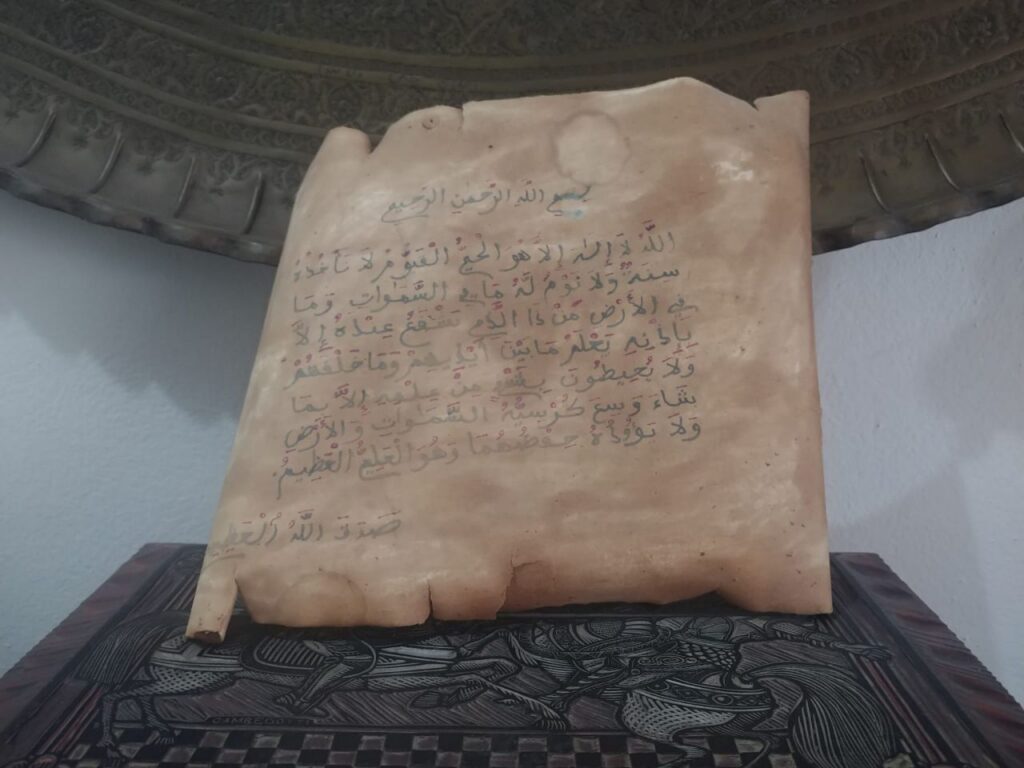 بسم الله الرحمن الرحيم
اللَّهُ لَا إِلَهَ إِلَّا هُوَ الْحَيُّ الْقَيُّومُ لَا تَأْخُذُهُ
سِنَةٌ وَلَا نَوْمٌ لَهُ مَا فِي السَّمَوَاتِ وَمَا
فِي الْأَرْضِ مَنْ ذَا الَّذِي يَشْفَعُ عِنْدَهُ إِلَّا
بِإِذْنِهِ يَعْلَمُ مَا بَيْنَ أَيْدِيهِمْ وَمَا خَلْفَهُمْ
وَلَا يُحِيطُونَ بِشَيْءٍ مِنْ عِلْمِهِ إِلَّا بِمَا
شَاءَ وَسِعَ كُرْسِيُّهُ السَّمَوَاتِ وَالْأَرْضَ
وَلَا يَؤُودُهُ حِفْظُهُمَا وَهُوَ الْعَلِيُّ الْعَظِيمُ.
صَدَقَ اللَّهُ الْعَظِيم